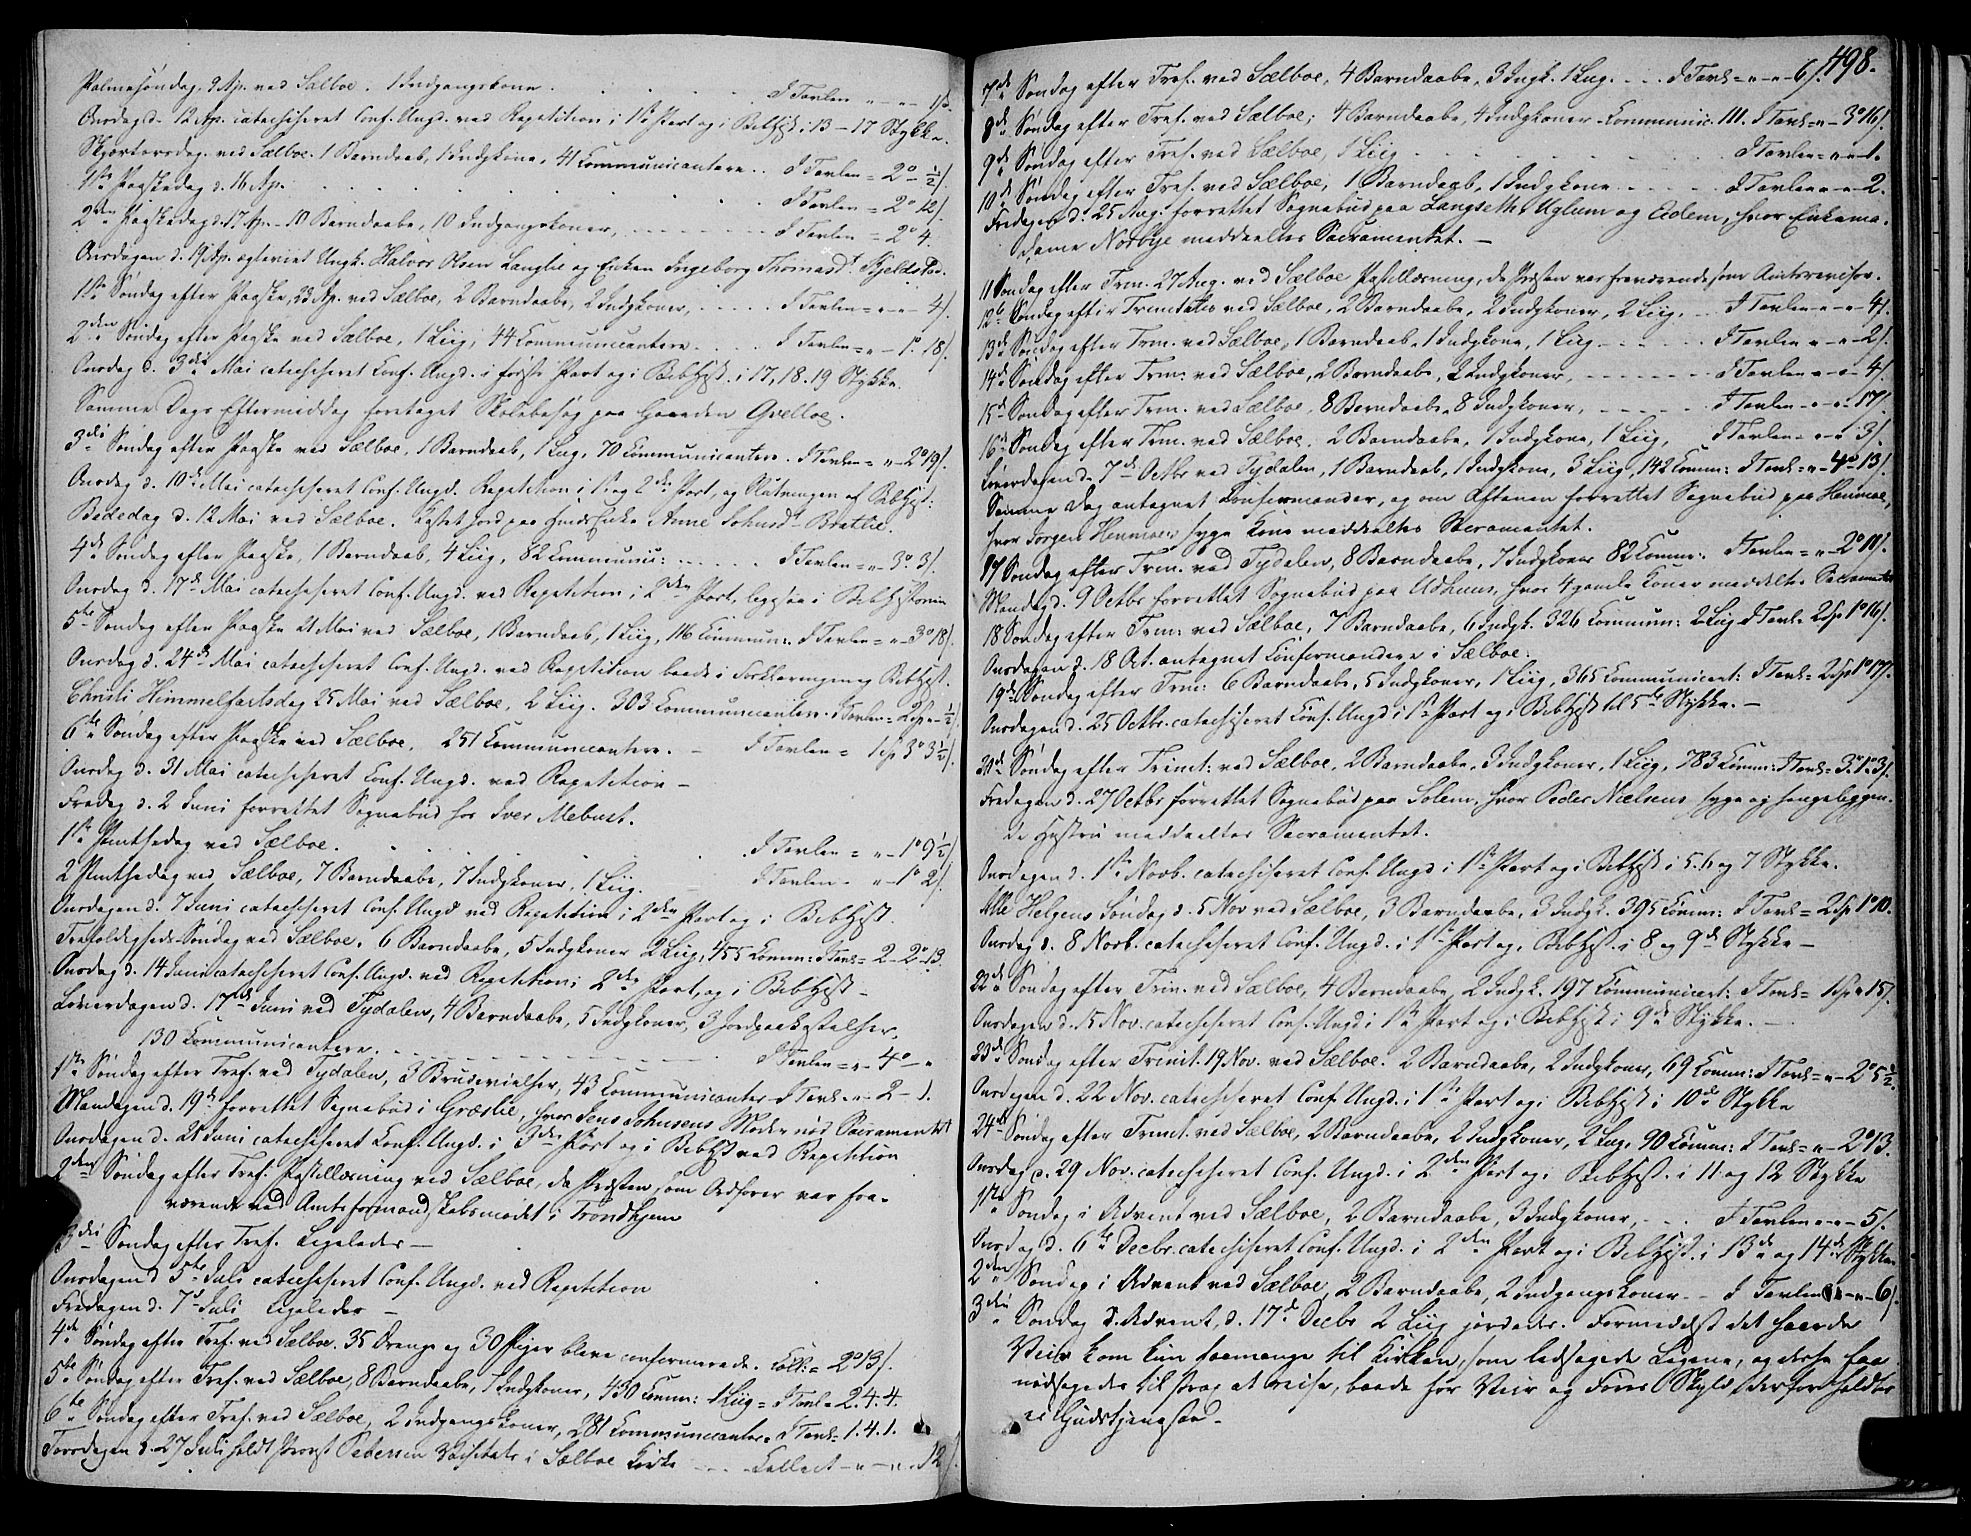 Palmesøndag, 9 Ap. ved Sælboe. 1 Indgangskone . . . . I Tavlen " - " - 1/s.
Onsdag d. 12 Ap. catechiseret Conf. Ungd. ved Repetition i 1ste Part og i BiblHist. i 13 - 17 Stykke.
Skjærtorsdag ved Sælboe. 1 Barndaab, 1 Indgkone, 41 Communicantere . . I Tavlen = 2° - ½/.
1ste Paaskedag d. 16 Ap. . . . . I Tavlen = 2° 12/.
2den Paaskedag d. 17 Ap. 10 Barndaabe, 10 Indgangskoner, - - - I Tavlen = 2° 4.
Onsdagen d. 19 Ap. egteviet Ungk. Halvor Olsen Langlie og Enken Ingeborg Thomasdr. Kjeldstad.
1ste Søndag efter Paaske, 23 Ap. ved Sælboe, 2 Barndaabe, 2 Indgkoner, . . . . I Tavlen = " - " - 4/.
2den Søndag efter Paaske ved Sælboe, 1 Liig, 44 Communicantere . . . I Tavlen = " - 1° 18/.
Onsdag d. 3die Mai catechiseret Conf. Ungd. i første Part og i BiblHist. i 17, 18. 19 Stykke.
Samme Dags Eftermiddag foretaget Skolebesøg paa Gaarden Qvelloe.
3die Søndag efter Paaske ved Sælboe, 1 Barndaab, 1 Liig, 70 Communicantere. I Tavlen = " - 2° 19/.
Onsdag d. 10de Mai catechiseret Conf. Ungd. Repetition i 1ste og 2den Part, og Slutningen af BiblHist:
Bededag d. 12 Mai ved Sælboe. kastet Jord paa Enke Anne Johnsdr. Bratlie.
4de Søndag efter Paaske, 1 Barndaab, 4 Liig, 82 Communic: . . . . . I Tavlen = " - 3° 3/.
Onsdag d. 17de Mai catechiseret Conf. Ungd. ved Repetition i 2den Part, ligesaa i BiblHistorien
5te Søndag efter Paaske 21 Mai ved Sælboe, 1 Barndaab, 1 Liig, 116 Commun: I Tavlen = " - 3° 18/.
Onsdag d. 24de Mai catechiseret Conf. Ungd. ved Repetition baade i Forklaringen og BiblHist.
Christi Himmelfartsdag 25 Mai ved Sælboe, 2 Liig. 303 Communicantere. I Tavlen = 2Sp " - ½/.
6te Søndag efter Paaske ved Sælboe. 251 Communicantere. - I Tavlen = 1Sp 3° 3½/.
Onsdag d. 31 Mai catechiseret Conf. Ungd. ved Repetition -
Fredag d. 2 Juni forrettet Sognebud hos Iver Mebust.
1ste Pintsedag ved Sælboe. . . . . I Tavlen = " - 1° 9½/.
2 Pintsedag ved Sælboe, 7 Barndaabe, 7 Indgkoner, 1 Liig. I Tavlen - " - 1° 2/.
Onsdagen d. 7 Juni catechiseret Conf. Ungd. ved Repetition i 2den Part og i BiblHist.
Trefoldigheds Søndag ved Sælboe. 6 Barndaabe, 5 Indgkoner 2 Liig, 455 Comm: I Tavl = 2 - 2° 13.
Onsdag d. 14 Juni catechiseret Conf. Ungd. ved Repetition i 2den Part, og i BiblHist -
Løverdagen d. 17de Juni ved Tydalen, 4 Barndaabe, 5 Indgkoner, 3 Jordpaakastelser,
130 Communicantere. - - - I Tavlen = " - 4° - "
1ste Søndag efter Tref. ved Tydalen, 3 Brudevielser, 43 Communicanter. I Tavl = " - 2 - 1.
Mandagen d. 19de forrettet Sognebud i Græslie, hvor Jens Johnsens Moder nød Sacramentet
Onsdagen d. 21 Juni catechiseret Conf. Ungd. i 3die Part og i BiblHist ved Repetition
2den Søndag efter Tref. Postillæsning ved Sælboe, da Præsten som Ordfører var fra-
værende ved Amtsformandskabsmødet i Trondhjem
3die Søndag efter Tref. Ligeledes -
Onsdagen d 5te Juli catechiseret Conf. Ungd. ved Repetition
Fredagen d. 7de Juli Ligeledes -
4de Søndag efter Tref. ved Sælboe. 35 Drenge og 30 Piger bleve confirmerede. Coll: = 2° 13/.
5te Søndag efter Tref. ved Sælboe, 8 Barndaabe, 7 Indgkoner, 430 Comm: 1 Liig = I Tavl = 2. 4. 4.
6te Søndag efter Tref. ved Sælboe, 2 Indgangskoner, 281 Communicanter. I Tavl = 1. 4. 1.
Torsdagen d. 27 Juli holdt Provst Pedersen Visitats i Sælboe Kirke - - - Collect - " - " - 12/.
498.
7de Søndag efter Tref. ved Sælboe, 4 Barndaabe, 3 Indgk. 1 Liig. . . . I Tavl = " - " - 6/.
8de Søndag efter Tref. ved Sælboe; 4 Barndaabe, 4 Indgkoner - Communic. 111. I Tavl = " - 3° 16/.
9de Søndag efter Tref. ved Sælboe, 1 Liig . . . . I Tavlen = " - " - 1.
10de Søndag efter Tref. ved Sælboe, 1 Barndaab, 1 Indgkone . . . . I Tavlen = " - " - 2.
Fredagen d. 25 Aug. forrettet Sognebud paa Langseth, Uglum og Eidem, hvor Enkema-
dame Norbye meddeeltes Sacramentet. -
11 Søndag efter Trin. 27 Aug. ved Sælboe Postillæsning, da Præsten var fraværende som Amtsrevisor.
12te Søndag efter Trinitatis ved Sælboe, 2 Barndaabe, 2 Indgkoner, 2 Liig. . . I Tavlen - " - " - 4/.
13de Søndag efter Trin. ved Sælboe, 1 Barndaab, 1 Indgkone, 1 Liig - - - I Tavlen " - " - 2/.
14de Søndag efter Trin: ved Sælboe, 2 Barndaabe, 2 Indgkoner, - - - I Tavlen = " - " - 4/.
15de Søndag efter Trin. ved Sælboe. 8 Barndaabe, 8 Indgkoner, - - - I Tavlen - " - " 17/.
16de Søndag efter Trin. ved Sælboe. 2 Barndaabe, 1 Indgkone, 1 Liig, I Tavlen = " - " 3/.
Løverdagen d. 7de Octbr ved Tydalen, 1 Barndaab, 1 Indgkone, 3 Liig, 142 Comm: I Tavl = " - 4° 13/.
Samme Dag antaget Confirmander, og om Aftenen forrettet Sognebud paa Henmoe,
hvor Jørgen Henmoes syge Kone meddeeltes Sacramentet.
17 Søndag efter Trin. ved Tydalen, 8 Barndaabe, 7 Indgkoner 82 Comm: I Tavlen = " - 2° 11/.
Mandag d. 9 Octbr forrettet Sognebud paa Udhuus, hvor 4 gamle Koner meddeltes Sacramentet
18 Søndag efter Trin: ved Sælboe, 7 Barndaabe, 6 Indgk. 326 Commun: 2 Liig I Tavl = 2Sp 1° 16/.
Onsdagen d. 18 Oct. antaget Confirmandere i Sælboe.
19de Søndag efter Trin: 6 Barndaabe, 5 Indgkoner, 1 Liig, 365 Communicant: I Tavl = 2Sp 1° 17/.
Onsdagen d. 25 Octbr. catechiseret Conf. Ungd i 1ste Part og i BiblHist til 5te Stykke. -
20de Søndag efter Trinit: ved Sælboe, 2 Barndaabe, 3 Indgkoner, 1 Liig, 783 Comm: I Tavl = 3. 1° 3/.
Fredagen d. 27 Octbr forrettet Sognebud paa Solem, hvor Peder Nielsens syge og sengeliggen-
de Hustru meddeeltes Sacramentet.
Onsdagen d. 1ste Novb. catechiseret Conf. Ungd i 1ste Part og i BiblHist i 5. 6 og 7 Stykke.
Alle Helgens Søndag d. 5 Nov ved Sælboe, 3 Barndaabe, 3 Indgk. 395 Comm: I Tavl = 2Sp 1° 10.
Onsdag d. 8 Novb. catechiseret Conf. Ungd. i 1ste Part og i BiblHist. i 8 og 9de Stykke -
22de Søndag efter Trin. ved Sælboe, 4 Barndaabe, 2 Indgk. 197 Communicant: I Tavl = 1Sp " 15/.
Onsdagen d. 15 Nov. catechiseret Conf. Ungd i 1ste Part og i BiblHist i 9de Stykke. -
23de Søndag efter Trinit. 19 Nov. ved Sælboe. 2 Barndaabe, 2 Indgkoner, 69 Comm: I Tavl = " - 2° 5½.
Onsdagen d. 22 Nov. catechiseret Conf. Ungd. i 1ste Part og i BiblHist i 10de Stykke
24de Søndag efter Trinit. ved Sælboe, 2 Barndaabe, 2 Indgkoner, 2 Liig, 90 Comm: I Tavl = " - 2° 13.
Onsdag d. 29 Nov. catechiseret Conf. Ungd. i 2den Part og i BiblHist. i 11 og 12 Stykke
1ste Søndag i Advent ved Sælboe, 2 Barndaabe, 3 Indgkoner, - . . I Tavlen " - " - 5/.
Onsdag d. 6te Decbr. catechiseret Conf. Ungd. i 2den Part og i BiblHist. i 13de og 14de Stykke
2den Søndag i Advent ved Sælboe, 2 Barndaabe, 2 Indgangskoner - - I Tavlen " - " - 6/.
3die Søndag i Advent, d. 17de Decbr 2 Liig jordede. Formedelst det haarde
Veir kom kun faa mange til Kirken, som ledsagede Ligene, og disse saa
nødsagedes til strax at reise, baade for Veir og Føres Skyld, derfor holdtes
ei Gudstjeneste.